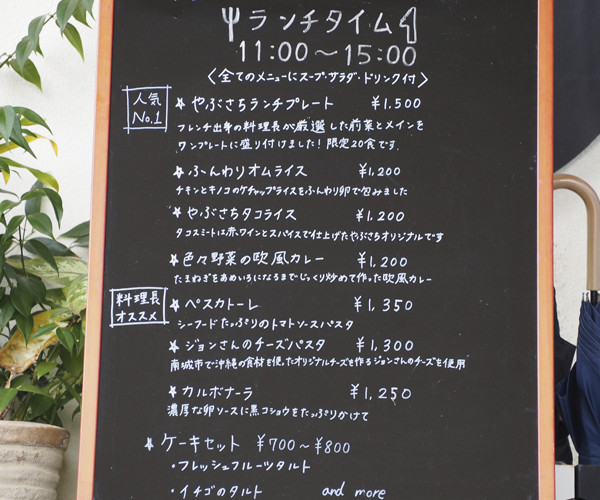 ランチタイム
11:00～15:00
〈全てのメニューにスープ・サラダ・ドリンク付〉
人気
No.1
☆やぶさちランチプレート ¥1,500
フレンチ出身の料理長が厳選した前菜とメインを
ワンプレートに盛り付けました！限定20食です。
☆ふんわりオムライス ¥1,200
チキンとキノコのケチャップライスをふんわり卵で包みました
☆やぶさちタコライス ¥1,200
タコスミートに赤ワインとスパイスで仕上げたやぶさちオリジナルです
☆色々野菜の欧風カレー ¥1,200
たまねぎをあめいろになるまでじっくり炒めて作った欧風カレー
料理長
オススメ
☆ペスカトーレ ¥1,350
シーフードたっぷりのトマトソースパスタ
☆ジョンさんのチーズパスタ ¥1,300
南城市で沖縄の食材を使ったオリジナルチーズを作るジョンさんのチーズを使用
☆カルボナーラ ¥1,250
濃厚な卵ソースに黒コショウをたっぷりかけて
☆ケーキセット ¥700～¥800
・フレッシュフルーツタルト
・イチゴのタルト and more